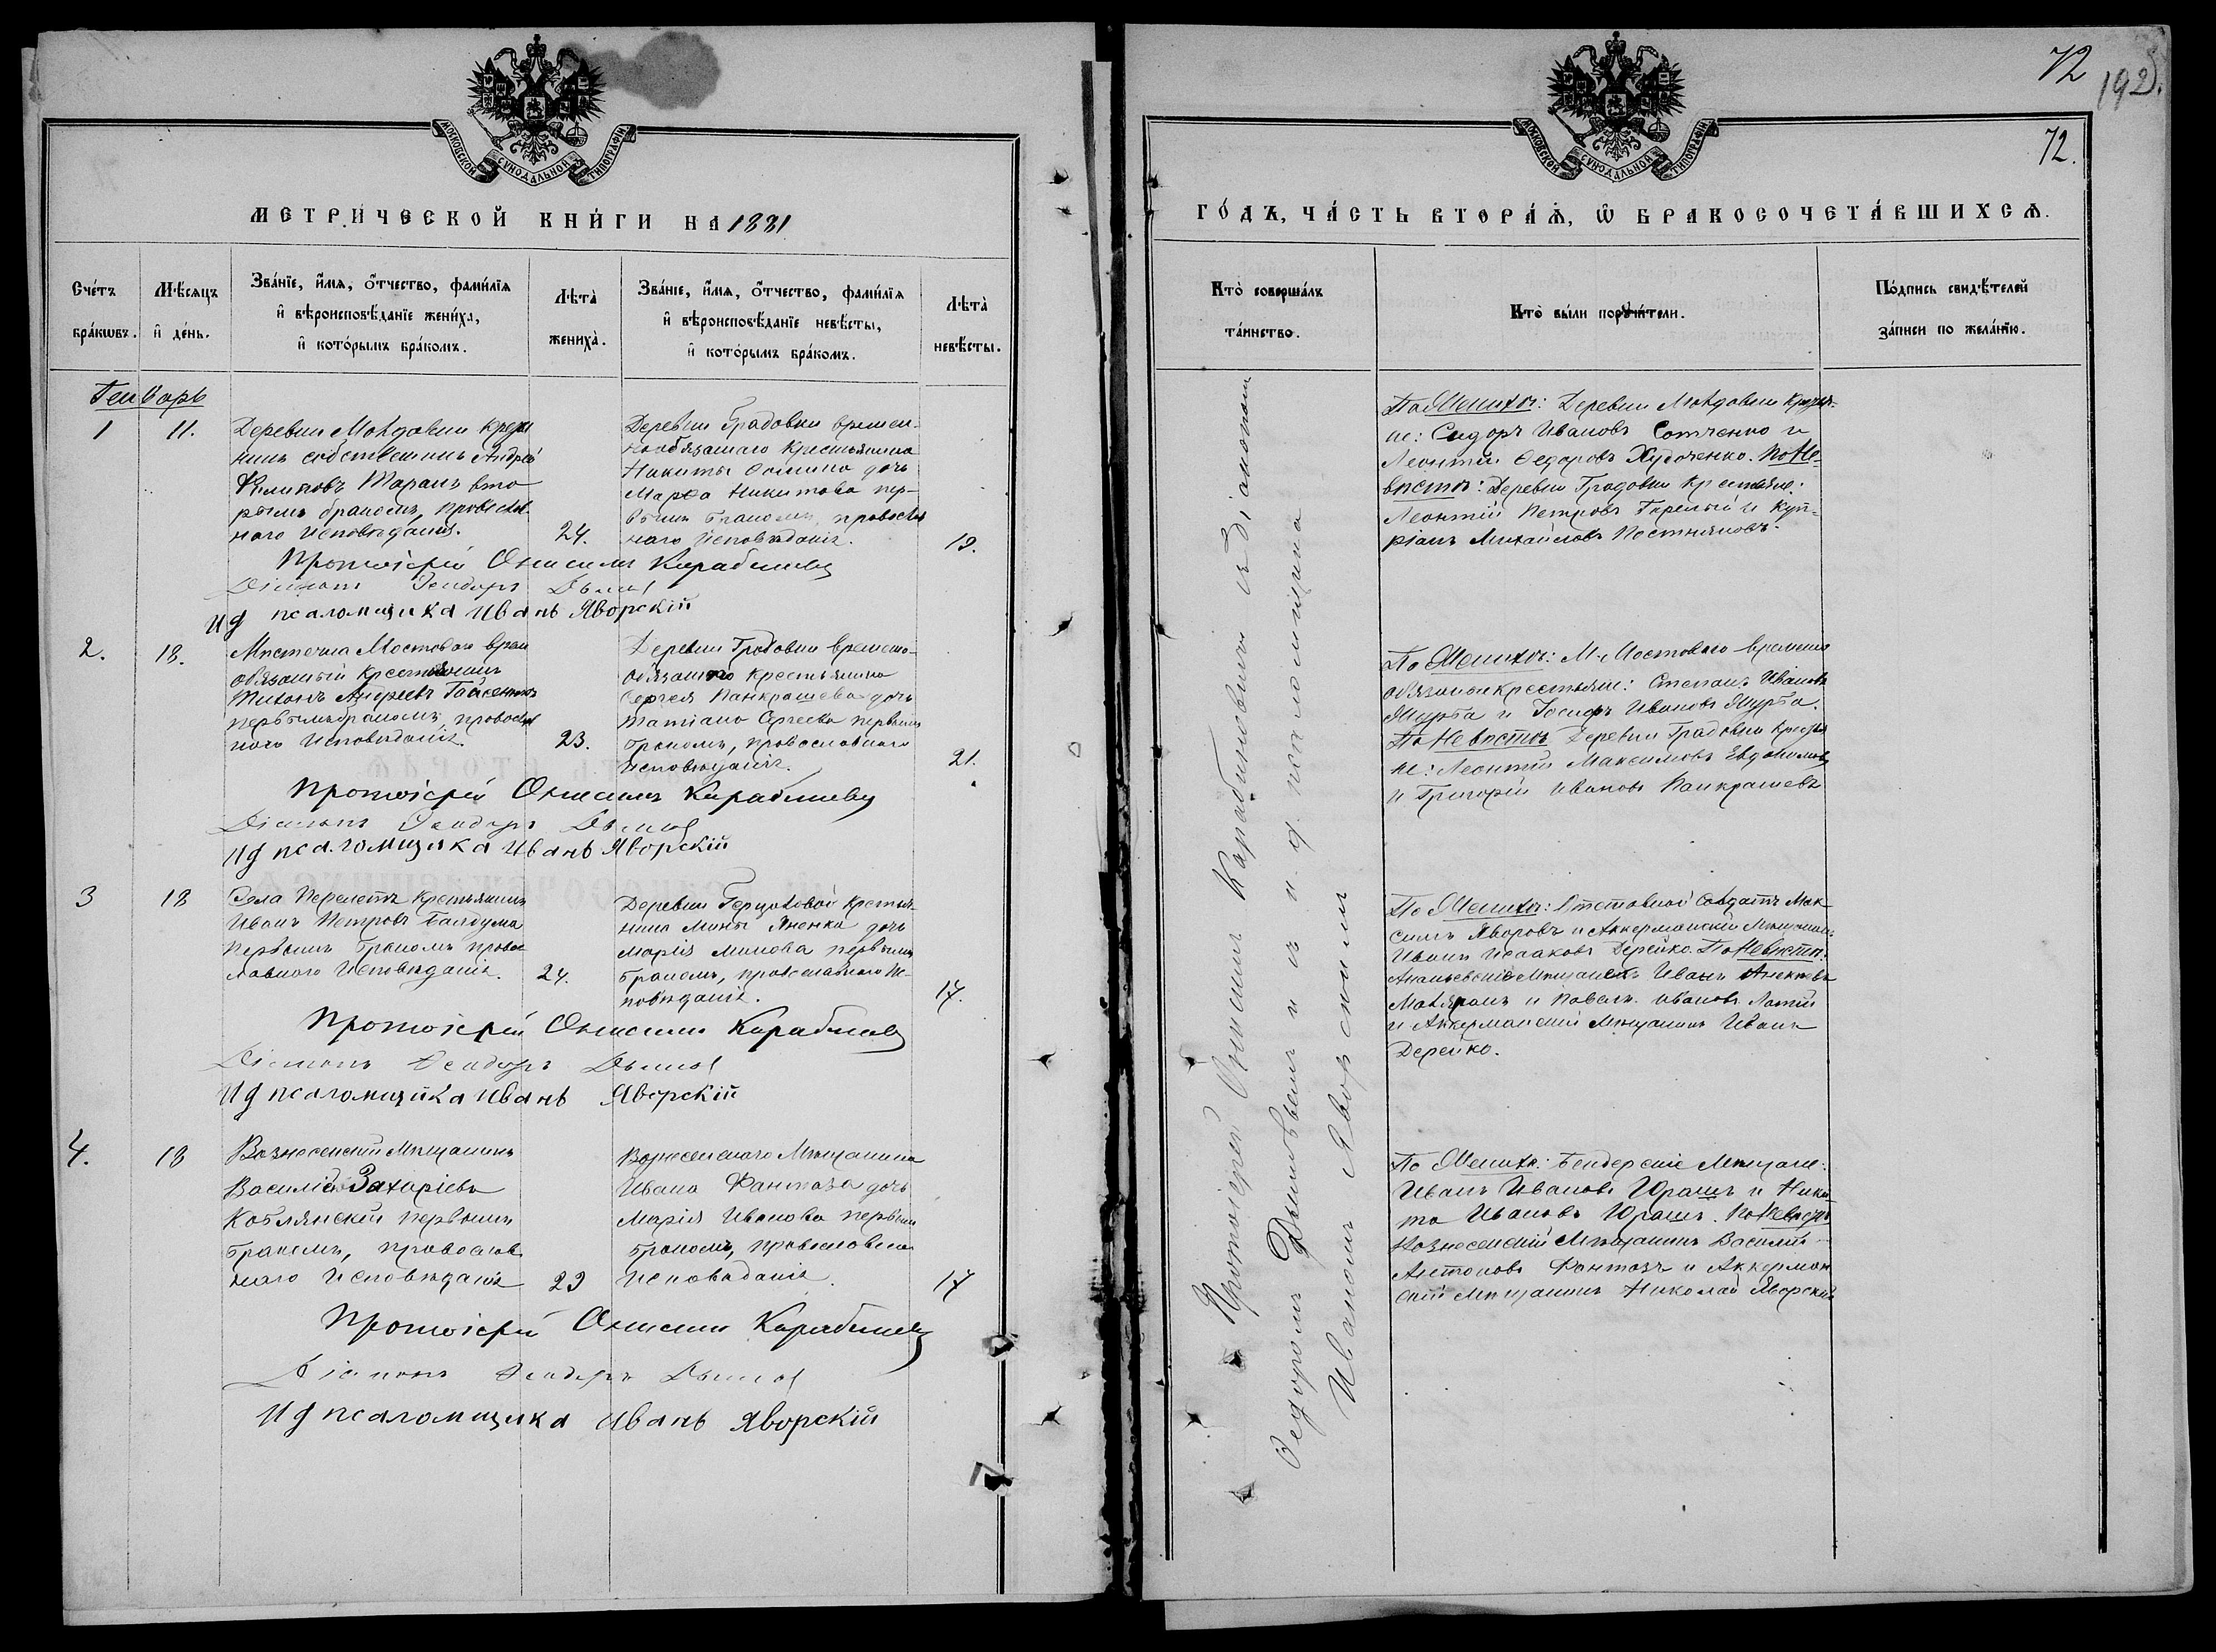 МОСКОВСКОЙ СѴНОДАЛЬНОЙ ТИПОГРАФІИ
МЕТРИ́ЧЕСКОЙ КНИ́ГИ НА 1881
Сче́тъ бра́кѡвъ.
Мѣ́сяцъ и҆ де́нь.
Зва́нїе, и҆́мѧ, ѻ҆́тчество, фами́лїѧ
и҆ вѣроисповѣ́данїе жениха̀,
и҆ кото́рымъ бра́комъ.
Лѣта̀
жениха̀.
Зва́нїе, и҆́мѧ, ѻ҆́тчество, фами́лїѧ
и҆ вѣроисповѣ́данїе невѣ́сты,
и҆ кото́рымъ бра́комъ.
Лѣта̀
невѣ́сты.
Генварь
1
11.
Деревни
собственникъ Андрей
Филиповъ Таранъ вто
рымъ бракомъ, православ
наго исповѣданія.
24.
Деревни Градовки времен-
нообязаннаго крестьянина
Никиты дочь
Марѳа Никитова пер-
вымъ бракомъ, православ
наго исповѣданія.
19.
Протоіерей Онисимъ
Діаконъ Ѳеодоръ
И д псаломщика Иванъ Яворскій
2.
18.
Мѣстечка Мостоваго врем
обязанный крестьянинъ
Тихонъ Андреевъ
первымъ бракомъ, православ
наго исповѣданія.
23.
Деревни Градовки временно-
обязаннаго крестьянина
Сергея Панкрашева дочь
Татіана Сергеева первымъ
бракомъ, православнаго
исповѣданія.
21.
Протоіерей Онисимъ
Діаконъ Ѳеодоръ
И д псаломщика Иванъ Яворскій
3
18
Села крестьянинъ
Иванъ Петровъ Балдума
первымъ бракомъ правос
лавнаго исповѣданія.
24.
Деревни крестья-
нина Мины Яненка дочь
Марія Минова первымъ
бракомъ, православнаго ис-
повѣданія.
17.
Протоіерей Онисимъ
Діаконъ Ѳеодоръ
И д псаломщика Иванъ Яворскій
4.
18
Вознесенскій Мѣщанинъ
Василій Захаріевъ
Коблянскій первымъ
бракомъ, православ
наго исповѣданія
29
Вознесенскаго Мѣщанина
Ивана Фантаза дочь
Марія Иванова первымъ
бракомъ, православнаго
исповѣданія.
17
Протоіерей Онисимъ
Діаконъ Ѳеодоръ
И д псаломщика Иванъ Яворскій
72
192.
72.
МОСКОВСКОЙ СѴНОДАЛЬНОЙ ТИПОГРАФІИ
ГО́ДЪ, ЧА́СТЬ ВТОРА́Ѧ, Ѽ БРАКОСОЧЕТА́ВШИХСѦ.
Кто̀ соверша́лъ
та́инство.
Кто̀ бы́ли поручи́тели.
По́дпись свидѣ́телей
за́писи по жела́нїю.
Протоіерей Онисимъ Карабиновичъ съ Діакономъ
Ѳедоромъ и съ и. д. псаломщика
Иваномъ Яворскимъ
По Женихѣ: Деревни
не: Сидоръ Ивановъ Сотченко и
Леонтій Ѳедоровъ Худоченко. По Не
вѣстѣ: Деревни Градовки крестьяне:
Леонтій Петровъ Горелый и Куп-
ріанъ Михайловъ Постняновъ.
По Женихѣ: М. Мостоваго временно
обязанные крестьяне: Степанъ Ивановъ
Журба и Іосифъ Ивановъ Журба.
По Невѣстѣ Деревни Градовки крестья
не: Леонтій Максимовъ Евдокимовъ
и Григорій Ивановъ Панкрашевъ
По Женихѣ: Отставной Солдатъ Мак
симъ Яворовъ и Аккерманскій Мѣщанинъ
Иванъ Исааковъ Дерейко. По Невѣстѣ:
Ананьевскіе Мѣщане: Иванъ
и Павелъ Ивановъ
и Аккерманскій Мѣщанинъ Иванъ
Дерейко.
По Женихѣ: Бендерскіе Мѣщане:
Иванъ Ивановъ Юрашъ и Ники
та Ивановъ Юрашъ. По Невѣстѣ
Вознесенскій Мѣщанинъ Василій
Антоновъ Фантазъ и Аккерман
скій Мѣщанинъ Николай Яворскій